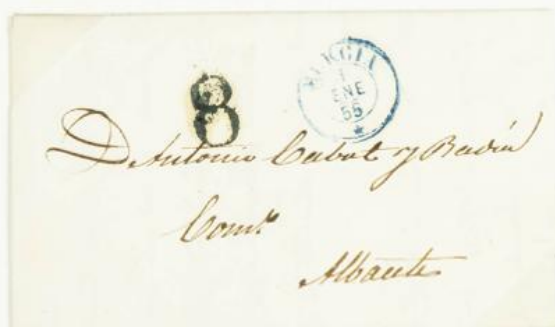 8
MURCIA
1
ENE
56
D. Antonio Cabot y Badía
Com.te
Albacete